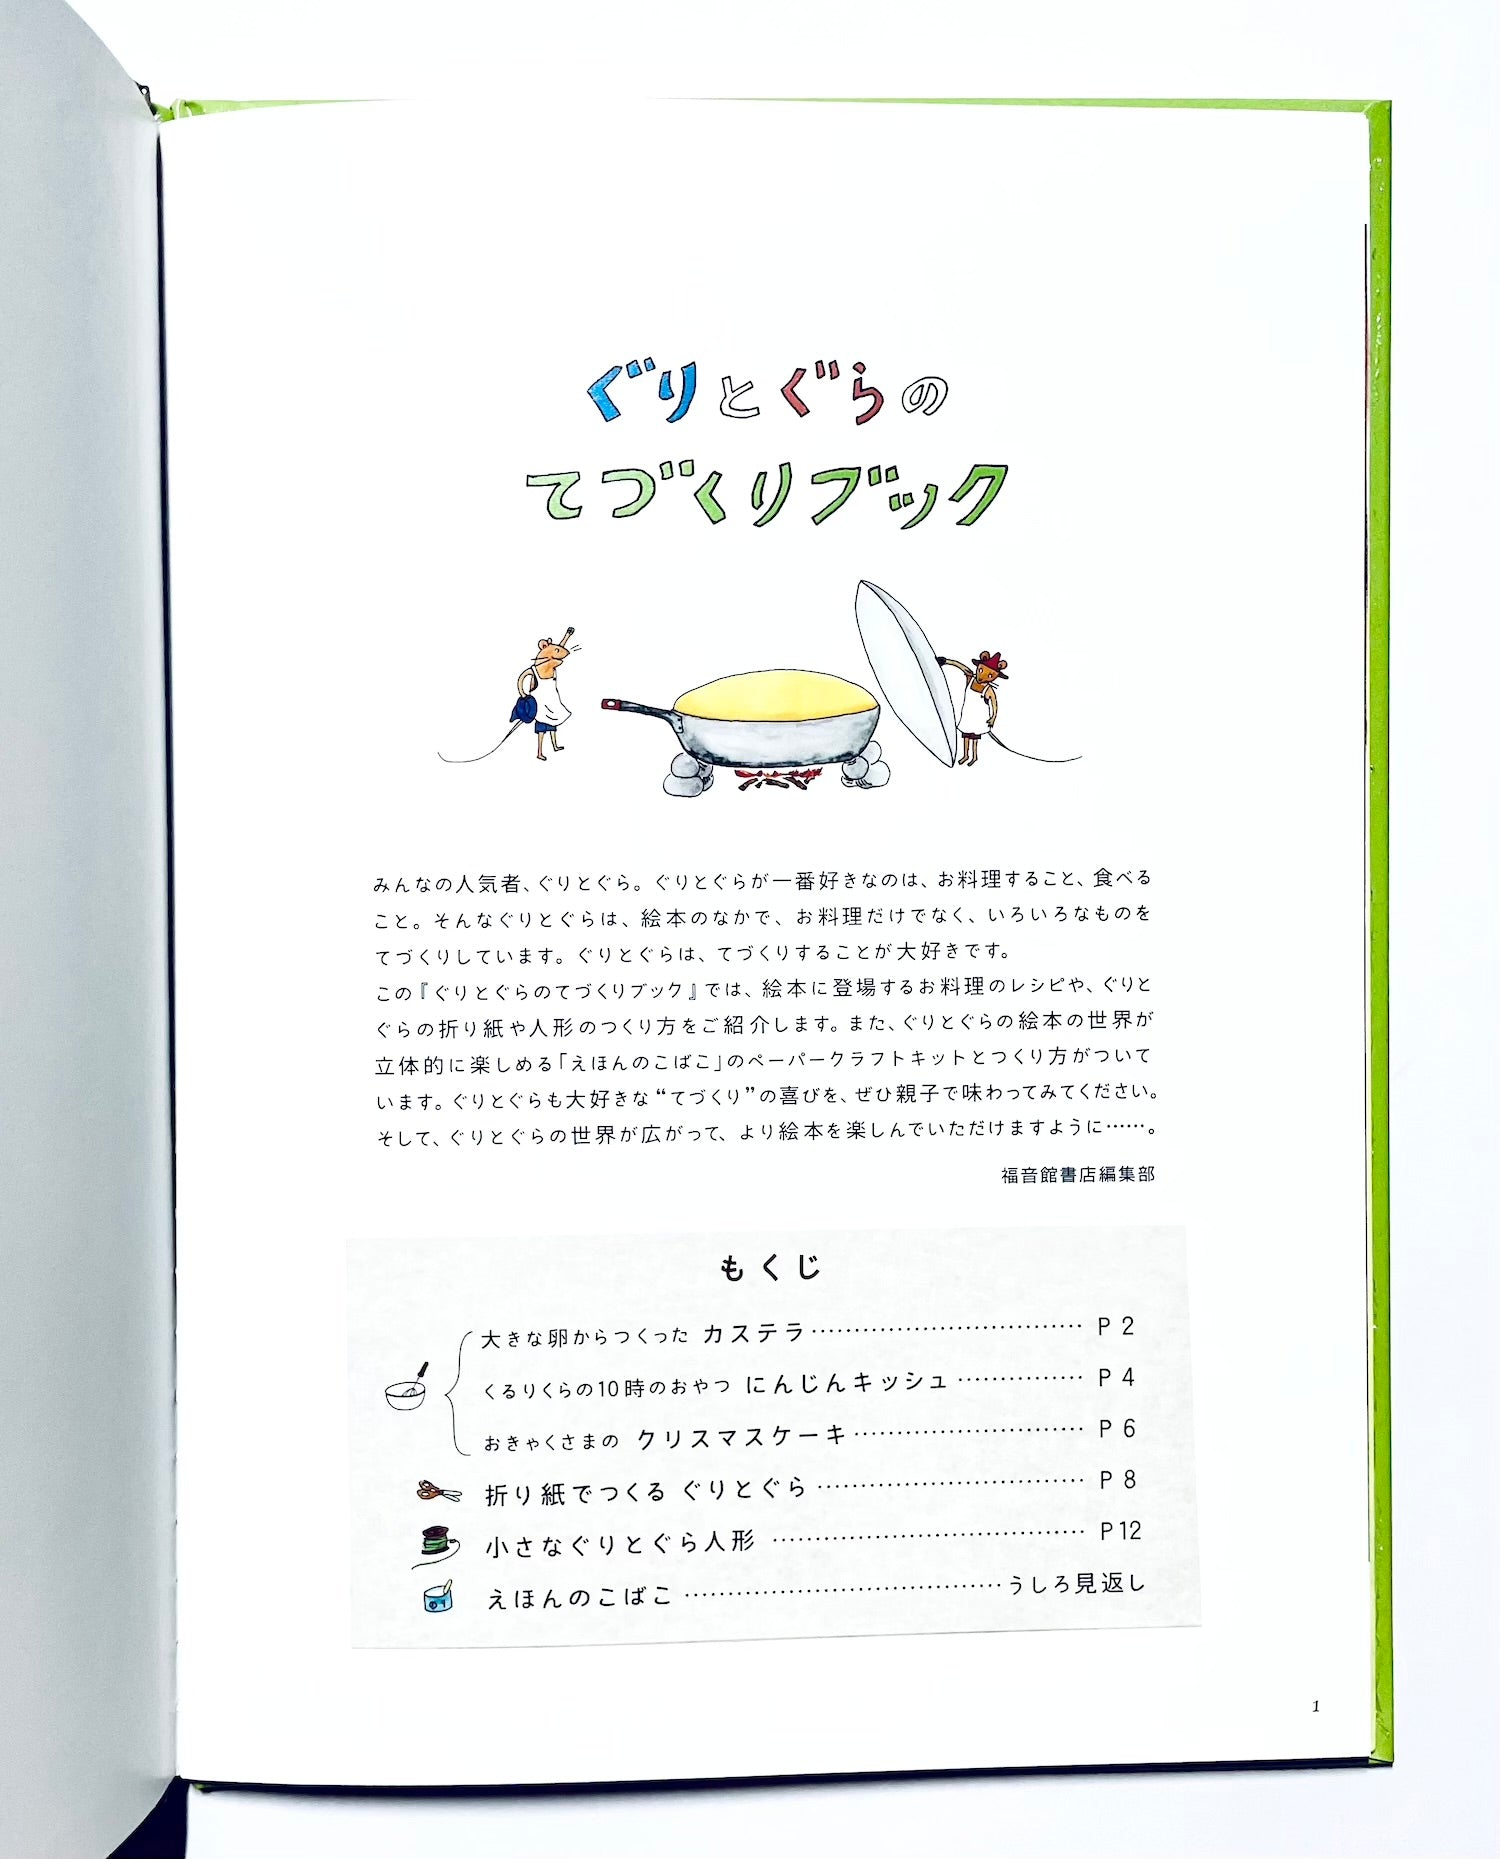 ぐりとぐらの
てづくりブック
みんなの人気者、ぐりとぐら。ぐりとぐらが一番好きなのは、お料理すること、食べる
こと。そんなぐりとぐらは、絵本のなかで、お料理だけでなく、いろいろなものを
てづくりしています。ぐりとぐらは、てづくりすることが大好きです。
この『ぐりとぐらのてづくりブック』では、絵本に登場するお料理のレシピや、ぐりと
ぐらの折り紙や人形のつくり方をご紹介します。また、ぐりとぐらの絵本の世界が
立体的に楽しめる「えほんのこばこ」のペーパークラフトキットとつくり方がついて
います。ぐりとぐらも大好きな“てづくり”の喜びを、ぜひ親子で味わってみてください。
そして、ぐりとぐらの世界が広がって、より絵本を楽しんでいただけますように……。
福音館書店編集部
もくじ
大きな卵からつくった カステラ……………………………… P 2
くるりくらの10時のおやつ にんじんキッシュ…………… P 4
おきゃくさまの クリスマスケーキ………………………… P 6
折り紙でつくる ぐりとぐら……………………………… P 8
小さなぐりとぐら人形 ………………………………… P12
えほんのこばこ …………………………………うしろ見返し
1